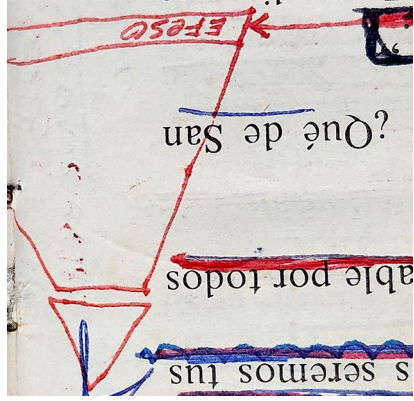 s seremos tus
able por todos
¿Qué de San
EFESO